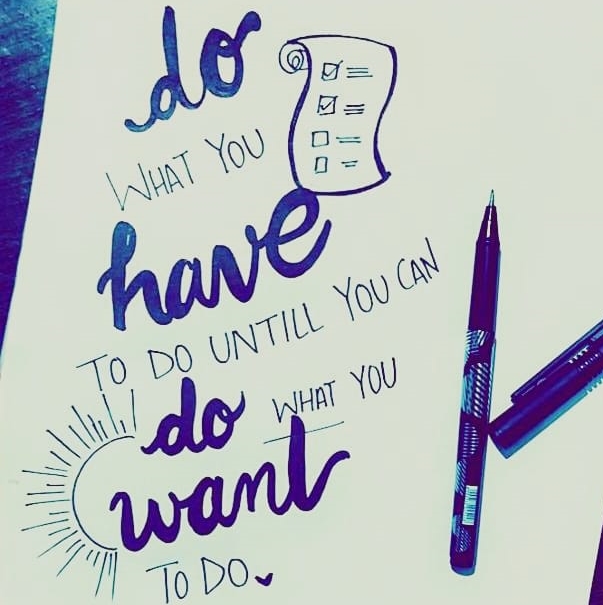 do
WHAT YOU
have
TO DO UNTILL YOU CAN
do WHAT YOU
want
TO DO